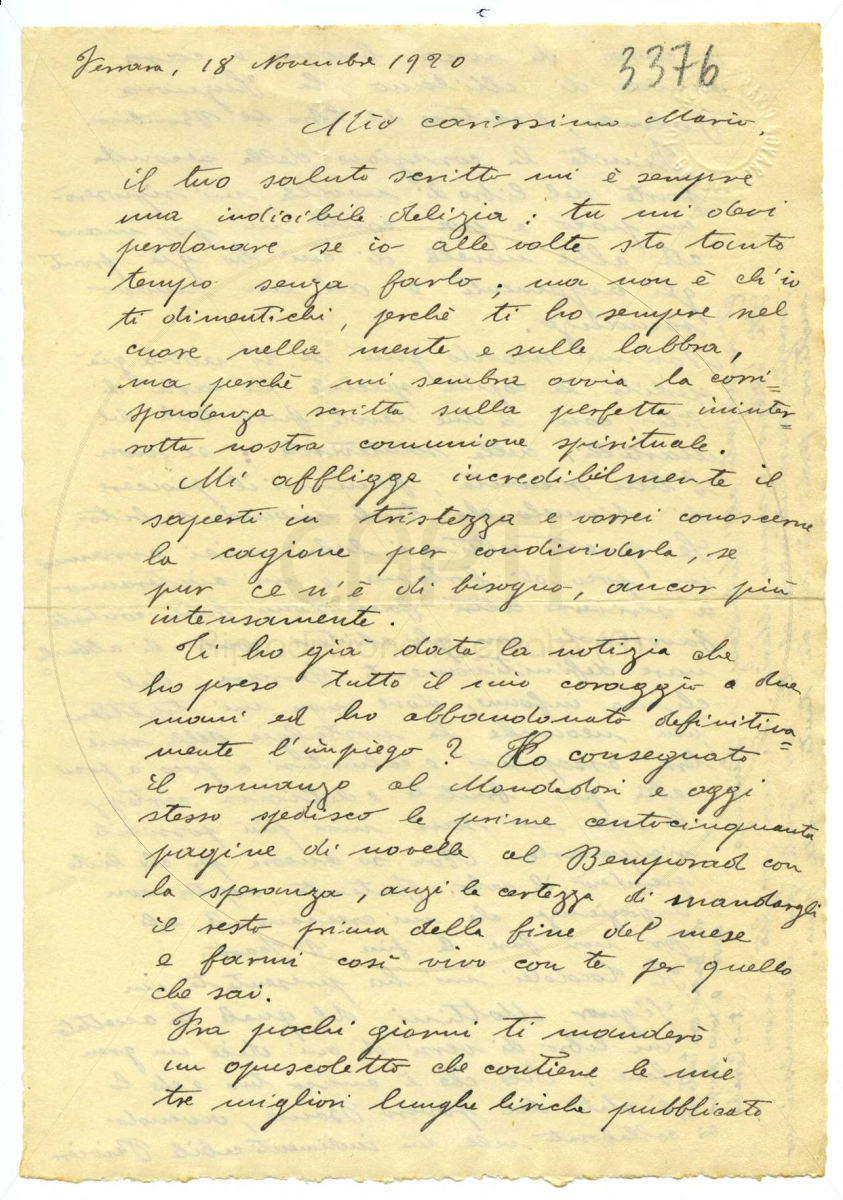 Ferrara, 18 Novembre 1920
3376
Mio carissimo Mario,
il tuo saluto scritto mi è sempre
una indicibile delizia: tu mi devi
perdonare se io alle volte sto tanto
tempo senza farlo; ma non è ch'io
ti dimentichi, perchè ti ho sempre nel
cuore nella mente e sulle labbra,
ma perchè mi sembra ovvia la corri=
spondenza scritta sulla perfetta ininter=
rotta nostra comunione spirituale.
Mi affligge incredibilmente il
saperti in tristezza e vorrei conoscerne
la cagione per condividerla, se
pur ce n'è di bisogno, ancor più
intensamente.
Ti ho già data la notizia che
ho preso tutto il mio coraggio a due
mani ed ho abbandonato definitiva=
mente l'impiego? Ho consegnato
il romanzo al Mondadori e oggi
stesso spedisco le prime centocinquanta
pagine di novelle al Bemporad con
la speranza, anzi la certezza di mandargli
il resto prima della fine del mese
e farmi così vivo con te per quello
che sai.
Fra pochi giorni ti manderò
un opuscoletto che contiene le mie
tre migliori lunghe liriche pubblicato